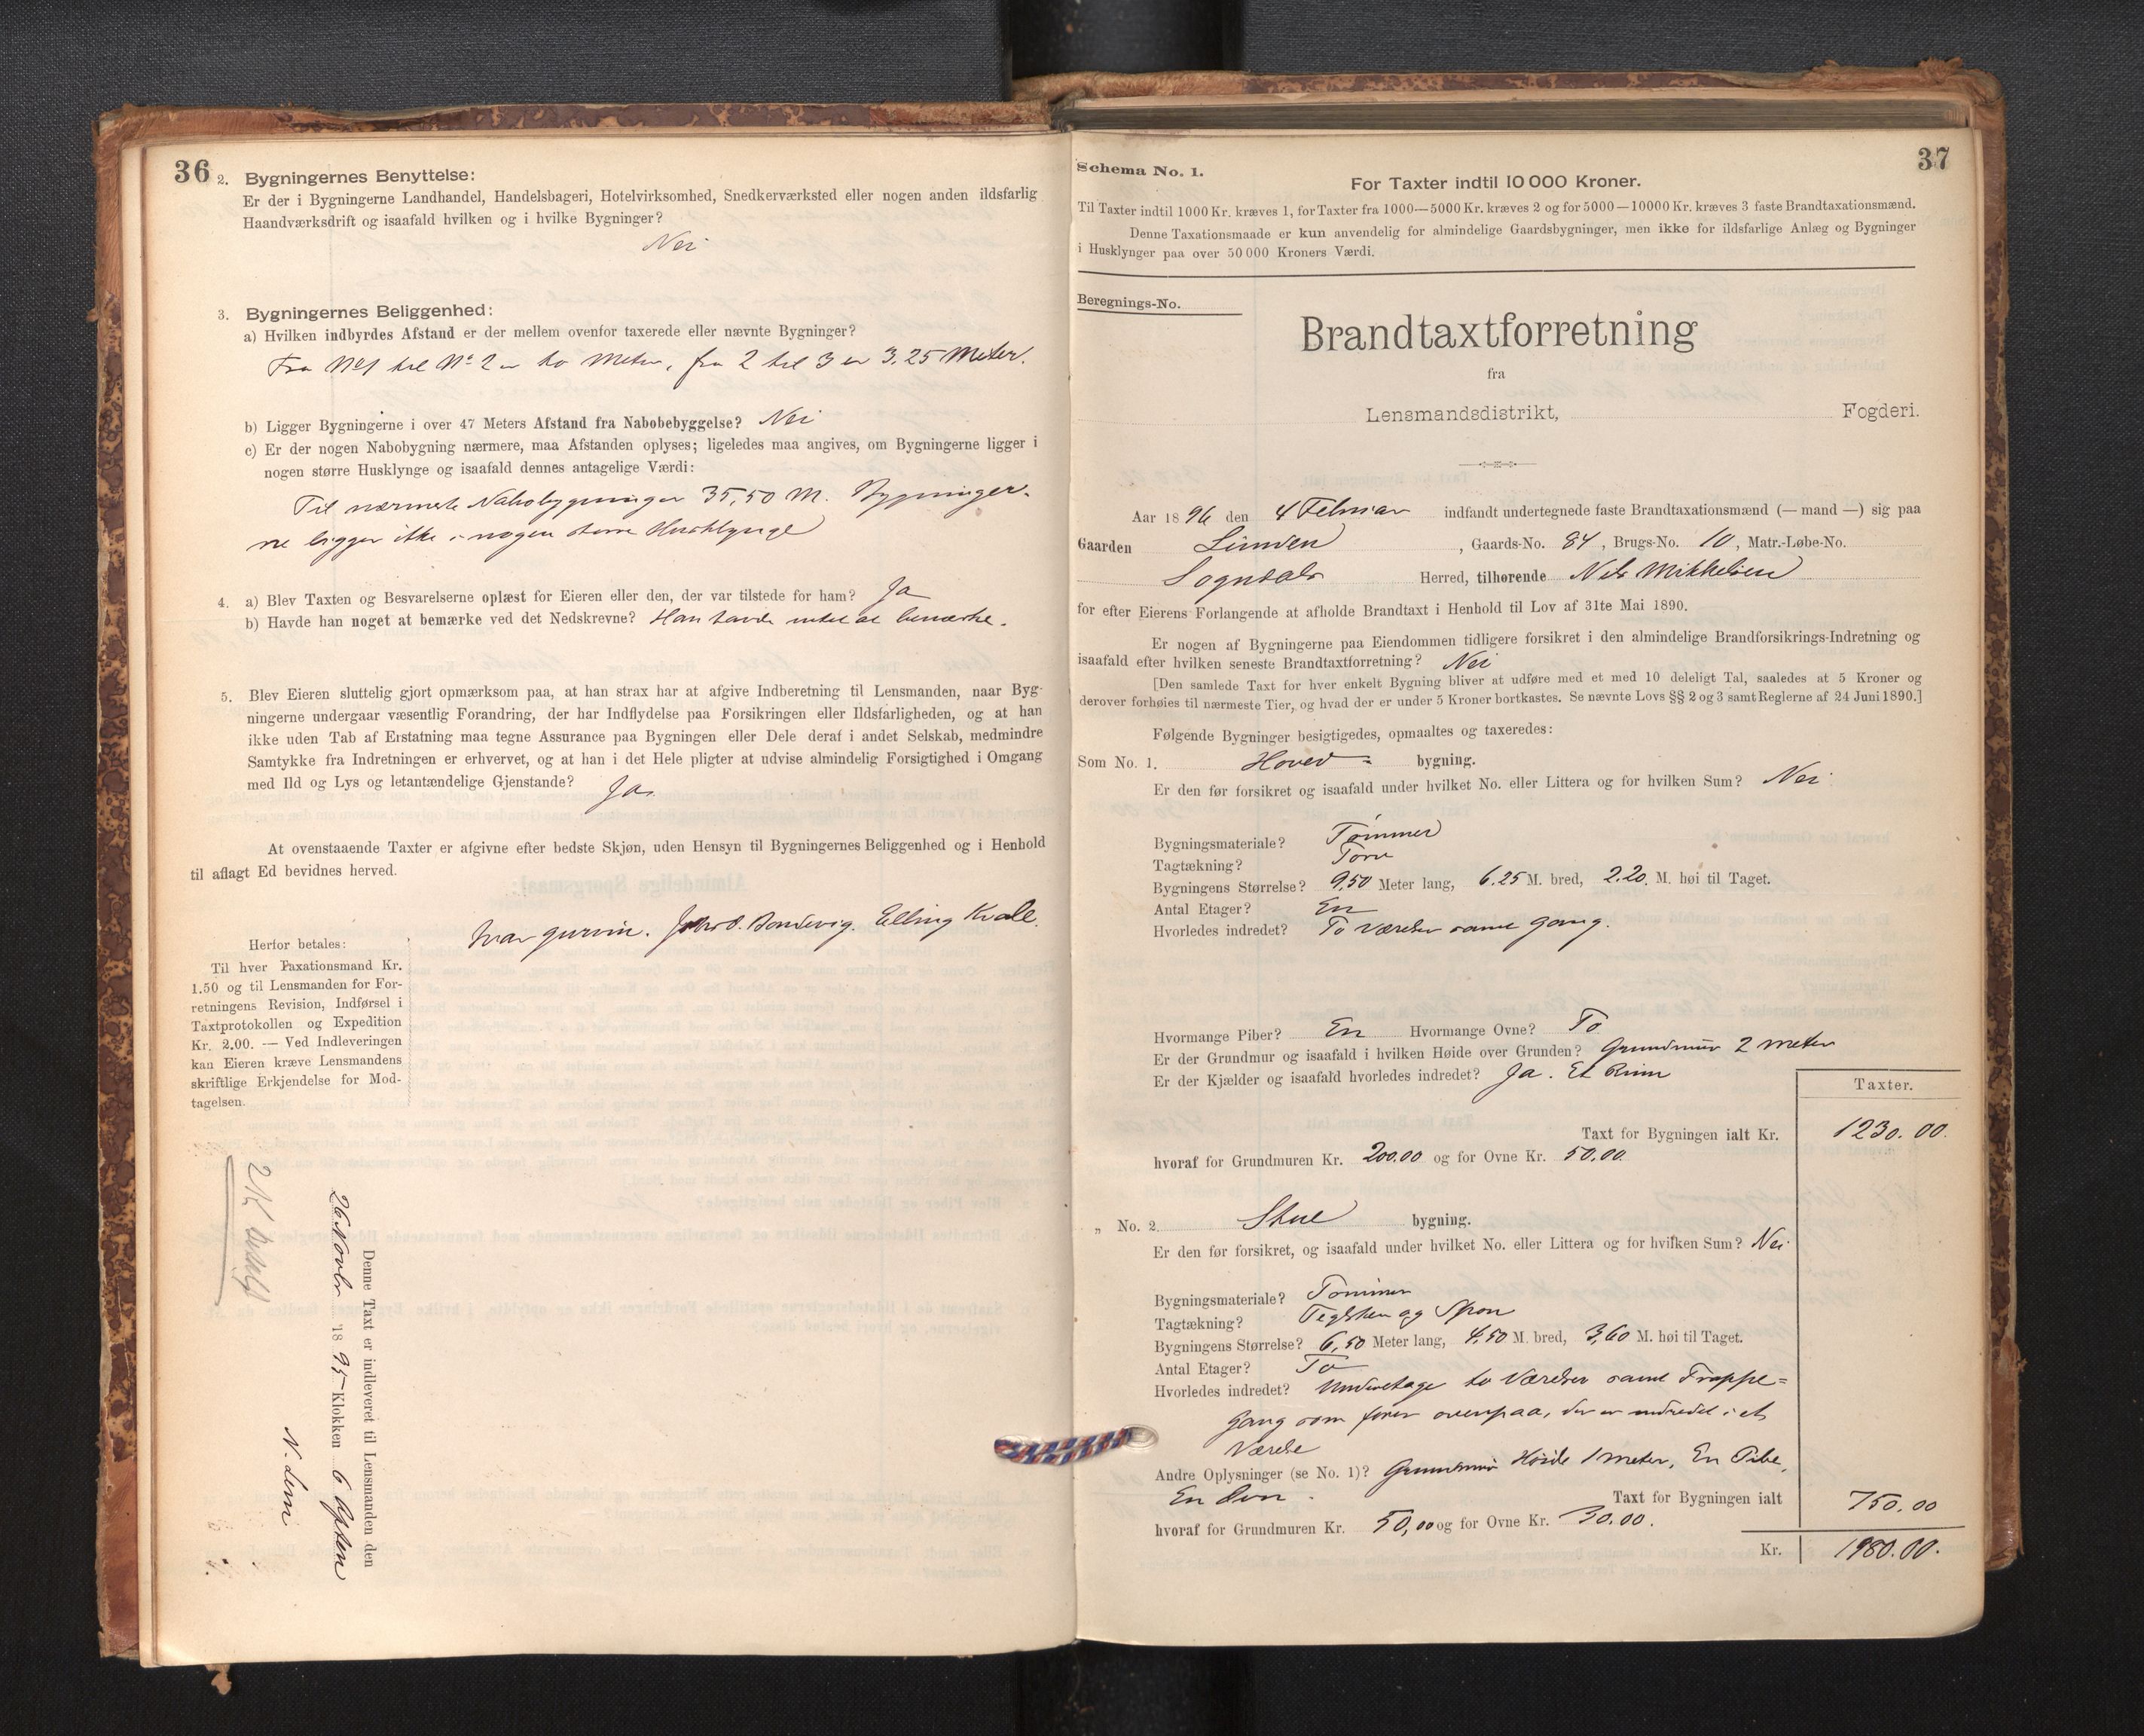 36
2. Bygningernes Benyttelse:
Er der i Bygningerne Landhandel, Handelsbageri, Hotelvirksomhed, Snedkerværksted eller nogen anden ildsfarlig
Haandværksdrift og isaafald hvilken og i hvilke Bygninger?
Nei
3. Bygningernes Beliggenhed:
a) Hvilken indbyrdes Afstand er der mellem ovenfor taxerede eller nævnte Bygninger?
Fra No 1 til No 2 er to Meter, fra 2 til 3 er 3,25 Meter.
b) Ligger Bygningerne i over 47 Meters Afstand fra Nabobebyggelse? Nei
c) Er der nogen Nabobygning nærmere, maa Afstanden oplyses; ligeledes maa angives, om Bygningerne ligger i
nogen større Husklynge og isaafald dennes antagelige Værdi:
Til nærmeste Nabobygninger 35,50 M. Bygninger-
ne ligger ikke i nogen større Husklynge
4. a) Blev Taxten og Besvarelserne oplæst for Eieren eller den, der var tilstede for ham? Ja
b) Havde han noget at bemærke ved det Nedskrevne? Han havde intet at bemærke.
5. Blev Eieren sluttelig gjort opmærksom paa, at han strax har at afgive Indberetning til Lensmanden, naar Byg-
ningerne undergaar væsentlig Forandring, der har Indflydelse paa Forsikringen eller Ildsfarligheden, og at han
ikke uden Tab af Erstatning maa tegne Assurance paa Bygningen eller Dele deraf i andet Selskab, medmindre
Samtykke fra Indretningen er erhvervet, og at han i det Hele pligter at udvise almindelig Forsigtighed i Omgang
med Ild og Lys og letantændelige Gjenstande? Ja
At ovenstaaende Taxter er afgivne efter bedste Skjøn, uden Hensyn til Bygningernes Beliggenhed og i Henhold
til aflagt Ed bevidnes herved.
Ivar Gurvin. Joh. O. Bondevig. Elling Kvale.
Herfor betales:
Til hver Taxationsmand Kr.
1.50 og til Lensmanden for For-
retningens Revision, Indførsel i
Taxtprotokollen og Expedition
Kr. 2.00. — Ved Indleveringen
kan Eieren kræve Lensmandens
skriftlige Erkjendelse for Mod-
tagelsen.
Denne Taxt er indleveret til Lensmanden den
26 Novbr 1895 Klokken 6 Aften
N. Lem
37
Schema No. 1.
For Taxter indtil 10 000 Kroner.
Til Taxter indtil 1000 Kr. kræves 1, for Taxter fra 1000—5000 Kr. kræves 2 og for 5000—10000 Kr. kræves 3 faste Brandtaxationsmænd.
Denne Taxationsmaade er kun anvendelig for almindelige Gaardsbygninger, men ikke for ildsfarlige Anlæg og Bygninger
i Husklynger paa over 50 000 Kroners Værdi.
Beregnings-No.
Brandtaxtforretning
fra
Lensmandsdistrikt, Fogderi.
Aar 1896 den 4 Februar indfandt undertegnede faste Brandtaxationsmænd (— mand —) sig paa
Gaarden Linden, Gaards-No. 84, Brugs-No. 10, Matr.-Løbe-No.
Sogndals Herred, tilhørende Nils Mikkelsen
for efter Eierens Forlangende at afholde Brandtaxt i Henhold til Lov af 31te Mai 1890.
Er nogen af Bygningerne paa Eiendommen tidligere forsikret i den almindelige Brandforsikrings-Indretning og
isaafald efter hvilken seneste Brandtaxtforretning? Nei
[Den samlede Taxt for hver enkelt Bygning bliver at udføre med et med 10 deleligt Tal, saaledes at 5 Kroner og
derover forhøies til nærmeste Tier, og hvad der er under 5 Kroner bortkastes. Se nævnte Lovs §§ 2 og 3 samt Reglerne af 24 Juni 1890.]
Følgende Bygninger besigtigedes, opmaaltes og taxeredes:
Som No. 1. Hoved= bygning.
Er den før forsikret og isaafald under hvilket No. eller Littera og for hvilken Sum? Nei
Bygningsmateriale? Tømmer
Tagtækning? Torv
Bygningens Størrelse? 9,50 Meter lang, 6.25 M. bred, 2.20. M. høi til Taget.
Antal Etager? En
Hvorledes indredet? To Værelser samt Gang.
Hvormange Piber? En Hvormange Ovne? To
Er der Grundmur og isaafald i hvilken Høide over Grunden? Grundmur 2 meter
Er der Kjælder og isaafald hvorledes indredet? Ja. Et Rum
Taxter.
Taxt for Bygningen ialt Kr. 1230.00.
hvoraf for Grundmuren Kr. 200.00 og for Ovne Kr. 50.00
„ No. 2. Stue bygning.
Er den før forsikret, og isaafald under hvilket No. eller Littera og for hvilken Sum? Nei
Bygningsmateriale? Tømmer
Tagtækning? Teglsten og Spon
Bygningens Størrelse? 6,50 Meter lang, 4,50 M. bred, 3,60 M. høi til Taget.
Antal Etager? To
Hvorledes indredet? Underetage to Værelser samt Trappe=
gang som fører ovenpaa, der er indredet i et
Værelse
Andre Oplysninger (se No. 1)? Grundmur Høide 1 meter, En Pibe,
En Ovn. Taxt for Bygningen ialt 750.00
hvoraf for Grundmuren Kr. 50,00 og for Ovne Kr. 30.00.
Kr. 1980.00.